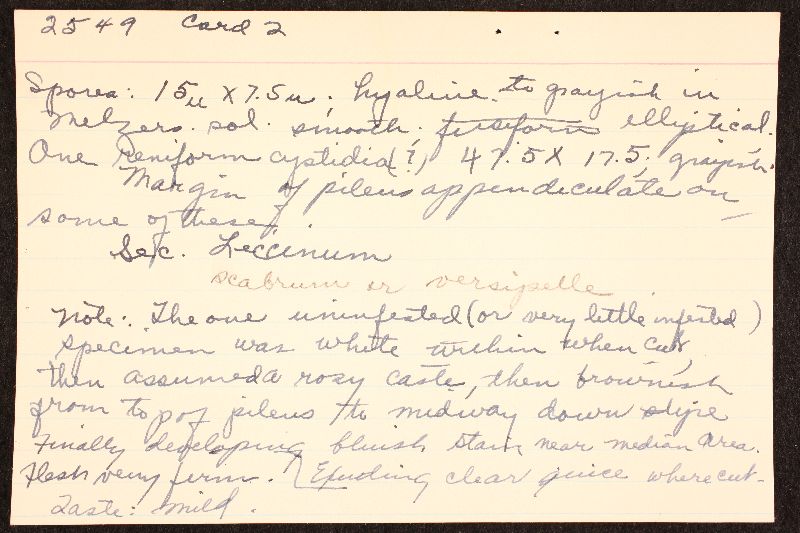 2549 Card 2
Spores: 15u X 7.5u; hyaline to grayish in
Melzers. sol. smooth. fusiform elliptical.
One reniform cystidia(?) 47.5 X 17.5; grayish.
Margin of pileus appendiculate on
some of these.
Sec. Leccinum
scabrum or versipelle
Note: The one uninfested (or very little infested)
specimen was white within when cut,
then assumed a rosy caste, then brownish
from top of pileus to midway down stipe
Finally developing bluish stain near median area.
Flesh very firm. Exuding clear juice where cut.
Taste: mild.